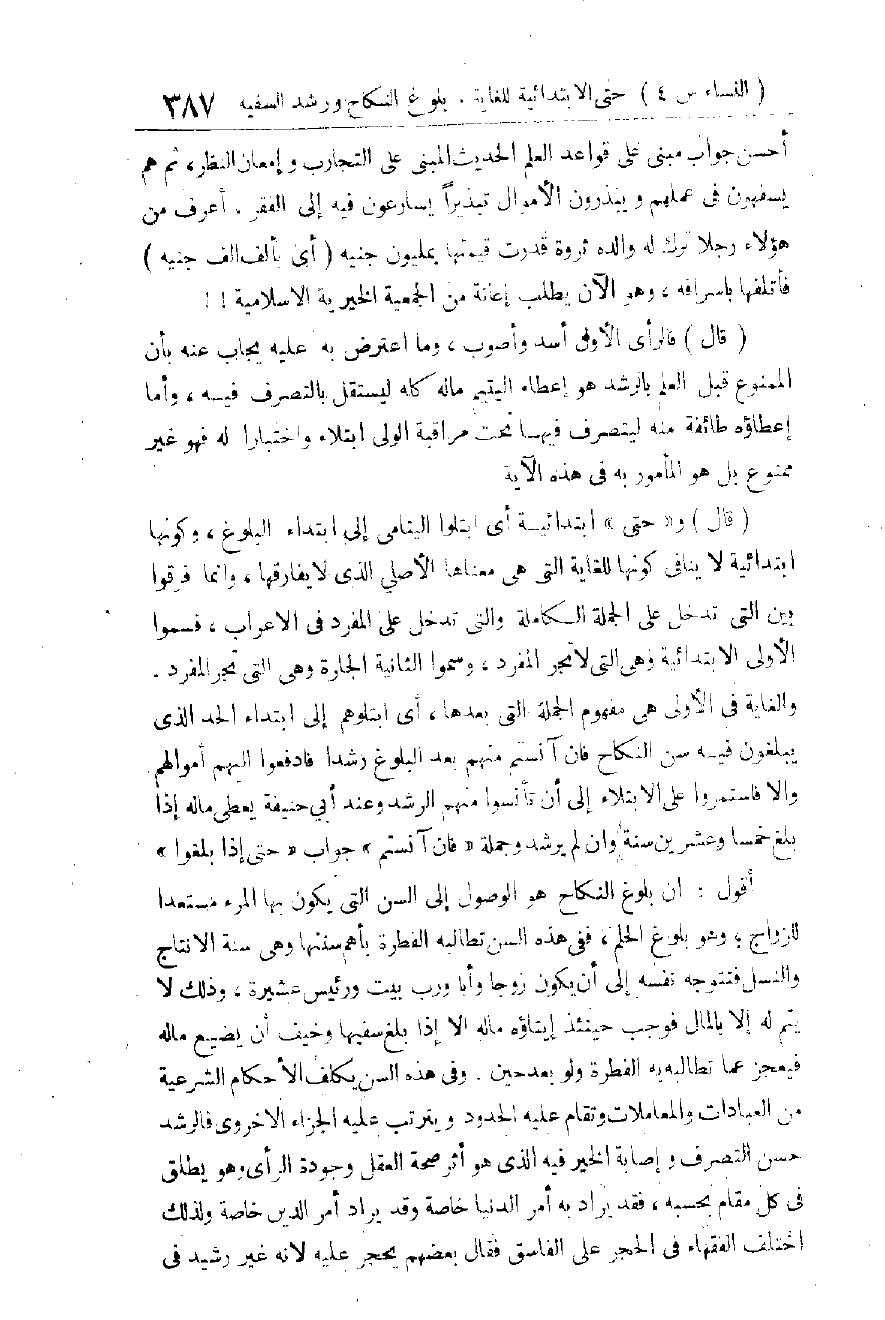 ( النساء س ٤ ) حتى الابتدائية للغاية . بلوغ النكاح ورشد السفيه ٣٨٧
أحسن جواب مبنى على قواعد العلم الحديث المبنى على التجارب و إمعان النظر، ثم هم
يسفهون فى عملهم و يبذرون الأموال تبذيراً يسارعون فيه إلى الفقر . أعرف من
هؤلاء رجلا ترك له والده ثروة قدرت قيمتها بمليون جنيه ( أى بألف الف جنيه )
فأتلفها باسرافه ، وهو الآن يطلب إعانة من الجمعية الخيرية الاسلامية ! !
( قال ) فالرأى الأول أسد وأصوب ، وما اعترض به عليه يجاب عنه بأن
الممنوع قبل العلم بالرشد هو إعطاء اليتيم ماله كله ليستقل بالتصرف فيـــه ، وأما
إعطاؤه طائفة منه ليتصرف فيهــا تحت مراقبة الولى ابتلاء واختبارا له فهو غير
ممنوع بل هو المأمور به فى هذه الآية
( قال ) و« حتى » ابتدائيــة أى ابتلوا اليتامى إلى ابتداء البلوغ ، وكونها
ابتدائية لا ينافى كونها للغاية التى هى معناها الأصلي الذى لا يفارقها ، وانما فرقوا
بين التى تدخل على الجملة الـكاملة والتى تدخل على المفرد فى الاعراب ، فسموا
الأولى الابتدائية وهى التى لا تجر المفرد ، وسموا الثانية الجارة وهى التى تجر المفرد .
والغاية فى الأولى هى مفهوم الجملة التى بعدها ، أى ابتلوهم إلى ابتداء الحد الذى
يبلغون فيــه سن النكاح فان آنستم منهم بعد البلوغ رشدا فادفعوا اليهم أموالهم
والا فاستمروا على الابتلاء إلى أن تأنسوا منهم الرشد وعند أبي حنيفة يعطى ماله إذا
بلغ خمسا وعشرين سنة وان لم يرشد وجملة « فان آنستم » جواب « حتى إذا بلغوا »
أقول : ان بلوغ النكاح هو الوصول إلى السن التى يكون بها المرء مستعدا
للزواج ، وهو بلوغ الحلم ، ففى هذه السن تطالبه الفطرة بأهم سننها وهى سنة الانتاج
والنسل فتتوجه نفسه إلى أن يكون زوجا وأبا ورب بيت ورئيس عشيرة ، وذلك لا
يتم له إلا بالمال فوجب حينئذ إيتاؤه ماله الا إذا بلغ سفيها وخيف أن يضيع ماله
فيعجز عما تطالبه به الفطرة ولو بعد حين . وفى هذه السن يكلف الأحكام الشرعية
من العبادات والمعاملات وتقام عليه الحدود و يترتب عليه الجزاء الاخروى فالرشد
حسن التصرف و إصابة الخير فيه الذى هو أثر صحة العقل وجودة الرأى وهو يطلق
فى كل مقام بحسبه ، فقد يراد به أمر الدنيا خاصة وقد يراد أمر الدين خاصة ولذلك
اختلف الفقهاء فى الحجر على الفاسق فقال بعضهم يحجر عليه لانه غير رشيد فى